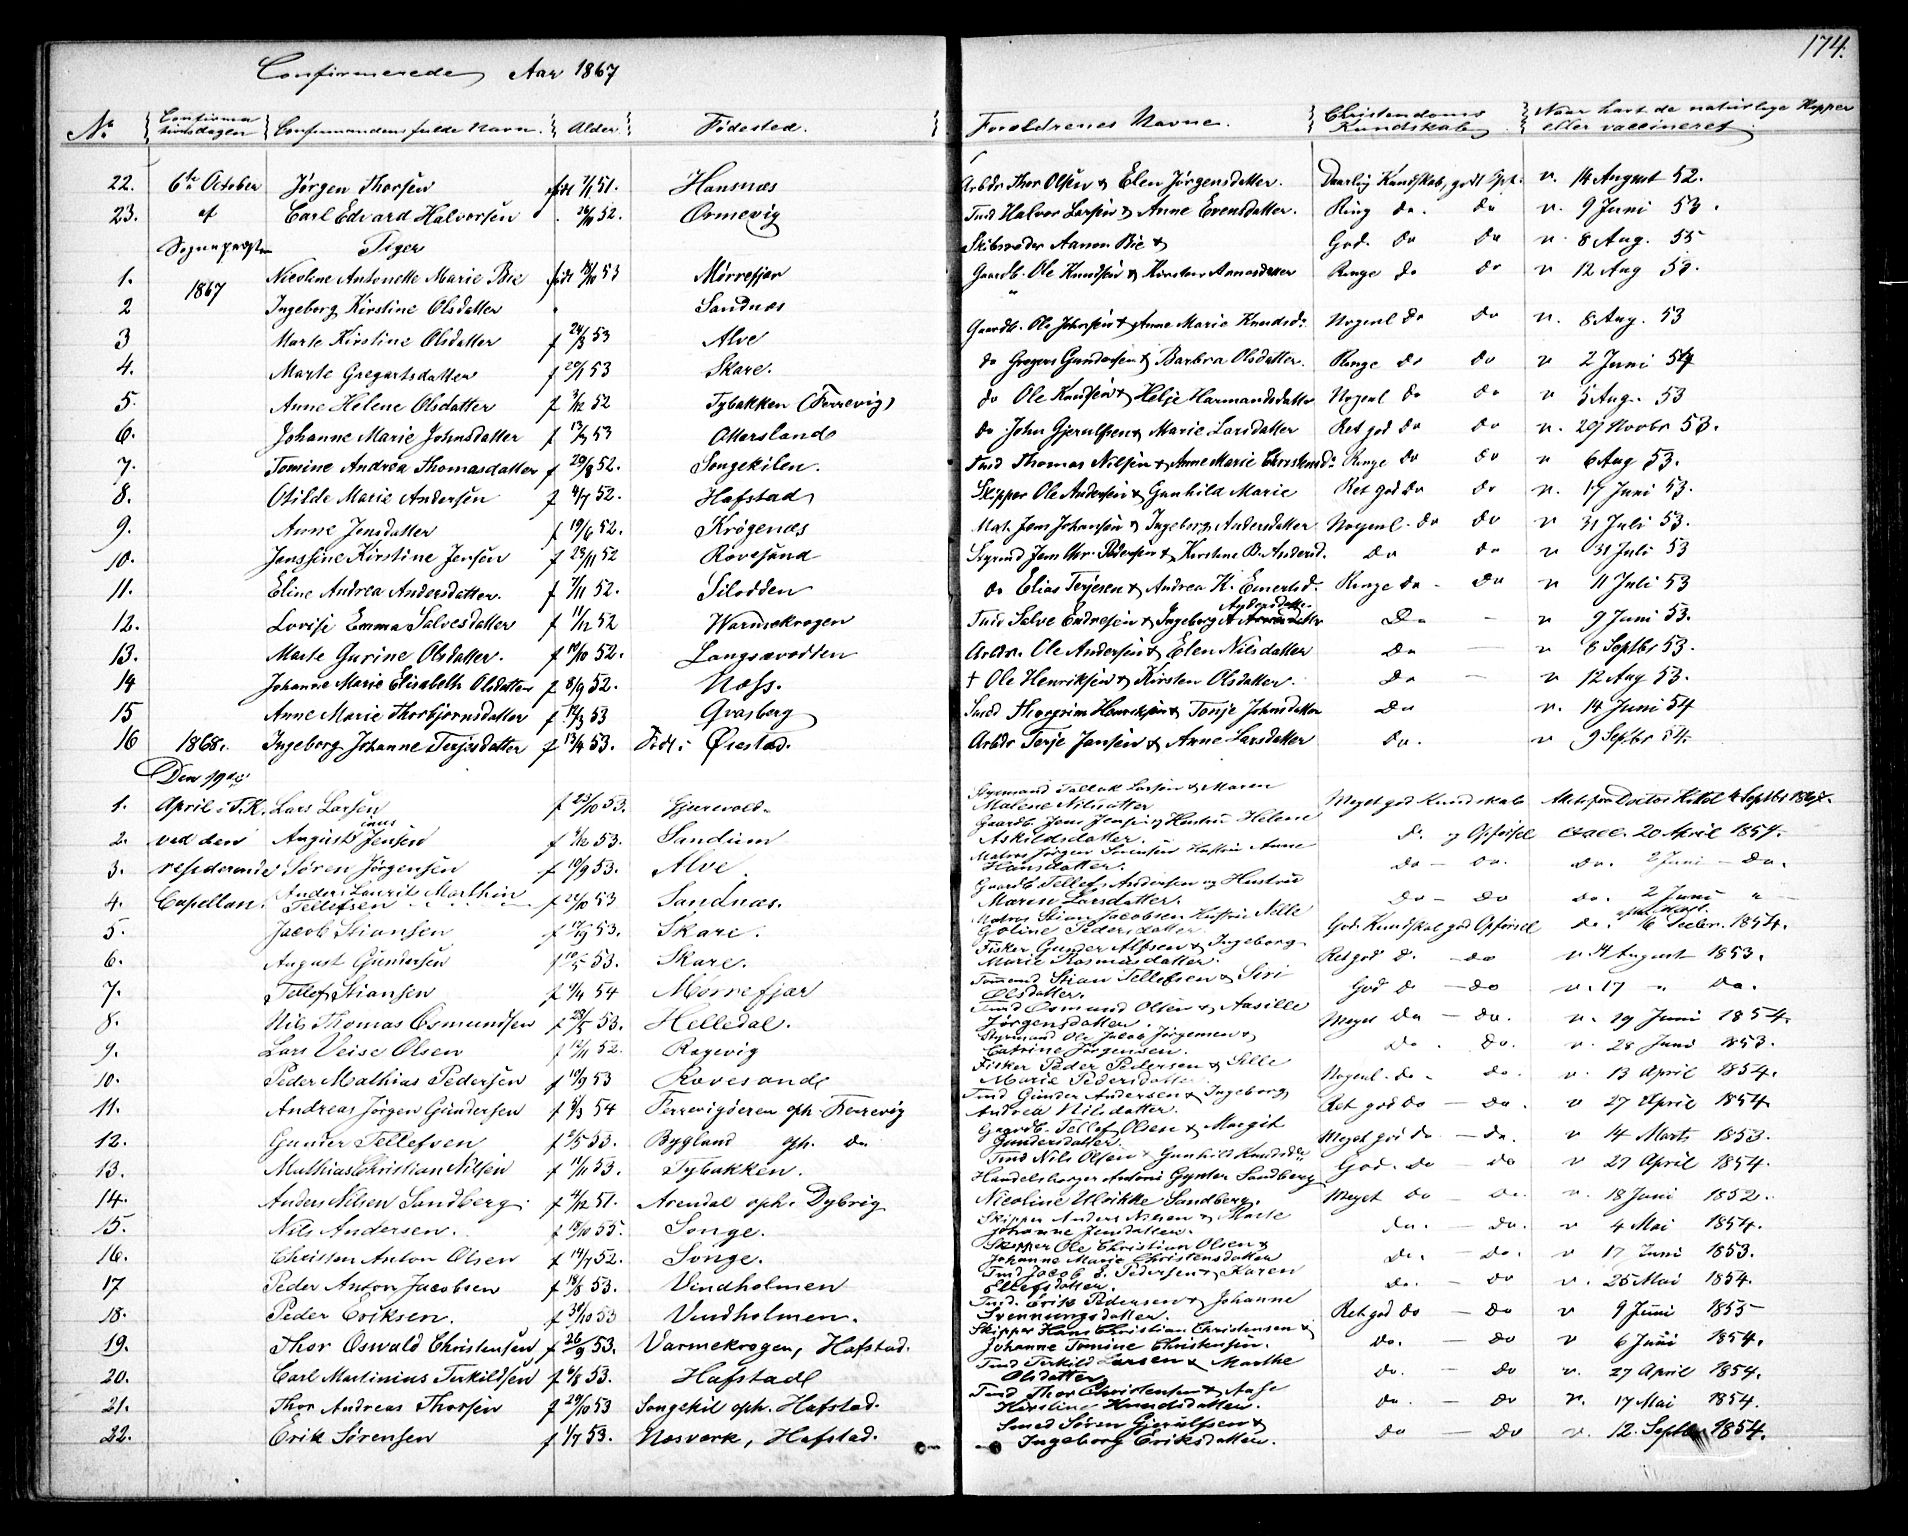 174.
Confirmerede Aar 1867
No Confirmationsdagen Confirmandens fulde Navn. Alder. Fødested. Forældrenes Navne. Christendoms Kundskab Naar havt de naturlige Kopper eller vaccineret
22. 6te October Jørgen Thorsen født 7/1 51. Hansnæs Arbdr Thor Olsen & Elen Jørgensdatter. Daarlig Kundskab, godt v. 14 August 52.
23. af Carl Edvard Halvorsen 26/10 52. Ormevig Tmd Halvor Larsen & Anne Evensdatter. Ring do. do v. 9 Juni 53.
Sognepresten Piger Skibsreder Aanon Bie & God. do do v. 8 Aug. 55
1. 1867 Nicoline Antonette Marie Bie født 53 Mørrefjær Gaardb. Ole Knudsen & Kirsten Ringe do do v 12 Aug
2 Ingeborg Kirstine Olsdatter Sandnæs Gaardb. Ole Johnsen & Anne Marie Knudsd. Nogenl do do v. 8 Aug. 53
3 Marte Kirstine Olsdatter f 24/3 53 Alve
4. Marte Gregertsdatter f 53 Skare. do Gregers Gundersen & Barbra Olsdatter. Ringe do do v 2 Juni 54
5. Anne Helene Olsdatter f 3/12 52 Tybakken (Færrevig) do Ole Knudsen & Helje Harmandsdatter Nogenl do do v 5 Aug. 53
6. Johanne Marie Johnsdatter f 13/3 53 Ottersland do John Gjerulfsen & Marie Larsdatter Ret god do do v. 29 Novbr 53.
7. Tomine Andrea Thomasdatter f 29/8 52. Songekilen. Tmd Thomas Nilsen & Anne Marie Ringe do do v 6 Aug 53.
8. Otilde Marie Andersen f 4/7 52. Hafstad Skipper Ole Andersen & Gunhild Marie Ret god do do v. 17 Juni 53.
9. Anne Jensdatter f 19/6 52. Krøgenæs Mat. Jens Johansen & Ingeborg Andersdatter Nogenl. do do v 31 Juli 53.
10. Jenssine Kirstine Jensen f 23/11 52 Rovesund Styrmd Jens Chr. Pedersen & Kirstine B. Andersd. do do v 31 Juli 53
11. Eline Andrea Andersdatter. f 7/11 52. Silodden do Elias Terjesen & Andrea K. Ringe do. do v 11 Juli 53
12. Lovise Emma Salvesdatter f 11/12 52 Warmekrogen Tmd Salve Endresen & Ingeborg A Andersdatter Do — v 9 Juni 53.
13. Marte Gurine Olsdatter. f 19/10 52. Langsævodden Arbdr. Ole Andersen & Elen Nilsdatter Do — v 8 Septbr 53.
14 Johanne Marie Elisabeth Olsdatter f 8/9 52. Næss. † Ole Henriksen & Kirsten Olsdatter. do — v 12 Aug 53.
15 Anne Marie Thorbjørnsdatter f 12/3 53 Gvasberg Smed & Tonje Johnsdatter Do v. 14 Juni 54
16 1868. Ingeborg Johanne Terjesdatter f 13/4 53. Øiestad. Arbdr Terje Jensen & Anne Larsdatter Do. v 9 Septbr 54.
Den 19de
1. April. T.K. Lars Larsen f 23/10 53. Gjerevold. Styrmand Tallak Larsen & Maren Malene Nilsdatter Meget god Kundskab Attest fra Doctor 4 Septbr 1867.
2. ved den Augustinius Jensen f 53. Sandum Gaardb. Jens Jensen og Hustru Helene Askildsdatter. do. og Opførsel vacc. 20 April 1854.
3. residerende Søren Jørgensen f 10/9 53. Alve. Matros Jørgen Sørensen Hustru Anne Hansdatter. do — do. do. 2 Juni — do.
4. Capellan. Anders Laurits Marthin Tellefsen f 53. Sandnæs. Gaardb Tellef Andersen og Hustru Maren Larsdatter. do — do do. 2 Juni "
5. Jacob Stiansen f 53. Skare. Matros Stian Jacobsen Hustru Nille Goline Pedersdatter God Kundskab god Opførsel do. 16 Decbr. 1854.
6. August Gundersen f 53. Skare. Fisker Gunder Alfsen & Ingeborg Marie Rasmusdatter. Ret god d. — do v. 14 August 1853.
7. Tellef Stiansen f 54 Mørrefjær Tømmermd Stian Tellefsen & Siri Olsdatter. God do — do v. 17 " do.
8. Nils Thomas Osmundsen f 28/5 53. Helledal. Tmd Osmund Olsen & Aasille Jørgensdatter. Meget do — do. v. 19 Juni 1854.
9. Lars Veise Olsen f 12/11 52. Ragevig Styrmand Ole Jacob Jørgensen & Catrine Jørgensen. do. do. v. 28 Juni 1853.
10. Peder Mathias Pedersen f 10/9 53 Rovesande Fisker Peder Pedersen & Sille Marie Pedersdatter Nogenl. do. do. v. 13 April 1854.
11. Andreas Jørgen Gundersen f 54 Færrevigøeren oph. Færrevig Tmd Gunder Andersen & Ingeborg Andrea Nilsdatter. Ret god do — do. v 27 April 1854
12. Gunder Tellefsen f 53. Bygland oph. do Gaardb. Tellef Olsen & Margit Gundersdatter. Meget god do — do. v 14 Marts 1853.
13. Mathias Christian Nilsen f 11/11 53. Tybakken. Tmd Nils Olsen & Gunhild Knudsdtr God. do do v 27 April 1854.
14. Anders Nilsen Sandberg f 51. Arendal oph. Dybvig Handelsborger Antoni Gynter Sandberg Nicoline Ulrikke Sandberg. Meget do — do. v. 18 Juni 1852.
15. Nils Andersen. f Songe. Skipper Anders Nilsen & Marte Johanne Jensdatter. do. — do. v 4 Mai 1854.
16. Christen Anton Olsen f 14/7 52. Songe. Skipper Ole Christian Olsen & Johanne Marie Christensdatter do. do. v 17 Juni 1853.
17 Peder Anton Jacobsen f 18/8 53. Vindholmen Tmd Jacob E. Pedersen & Karen Ellefsdatter. do. — do v. 25 Mai 1854.
18. Peder Eriksen. f 30/10 53 Vindholmen. Tmd. Erik Pedersen & Johanne Svenningsdatter. Ret god do — do v 9 Juni 1855
19. Thor Osvald Christensen f 26/9 53. Varmekrogen, Hafstad. Skipper Hans Christian Christensen & Johanne Tomine Christensen. do. — do v 6 Juni 1854.
20. Carl Martinius Terkildsen f 6/8 53. Hafstad Tmd Terkild Larsen & Marthe Olsdatter do. do v. 27 April 1854.
21. Thor Andreas Thorsen f 29/10 53 Songekil oph. Hafstad. Tmd Thor Christensen & Aase Kirstine Knudsdatter. do. — do v. 17 Mai 1854.
22. Erik Sørensen f 1/7 53. Næsverk, Hafstad. Smed Søren Gjerulfsen & Ingeborg Eriksdatter. do — do v. 12. Septbr 1854.